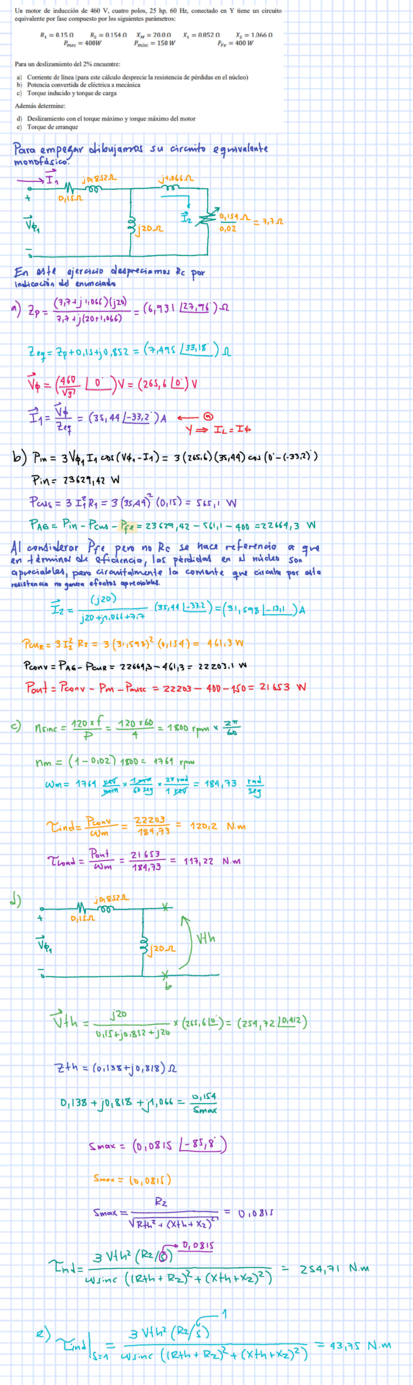 Un motor de inducción de 460 V, cuatro polos, 25 hp. 60 Hz, conectado en Y tiene un circuito
equivalente por fase compuesto por los siguientes parámetros:
R₁ = 0.15 Ω R₂ = 0.154 Ω X_M = 20.0 Ω X₁ = 0.852 Ω X₂ = 1.066 Ω
P_mec = 400W P_misc = 150 W P_Fe = 400 W
Para un deslizamiento del 2% encuentre:
a) Corriente de línea (para este cálculo desprecie la resistencia de pérdidas en el núcleo)
b) Potencia convertida de eléctrica a mecánica
c) Torque inducido y torque de carga
Además determine:
d) Deslizamiento con el torque máximo y torque máximo del motor
e) Torque de arranque
Para empezar dibujamos su circuito equivalente
monofásico.
I₁ j0,852Ω j1,066Ω
+ 0,15Ω I₂ 0,154Ω/0,02 = 7,7Ω
Vφ₁ j20Ω
-
En este ejercicio despreciamos Rc por
indicación del enunciado
a) Zp = (7,7+j1,066)(j20) / 7,7+j(20+1,066) = (6,931 ∠27,96°) Ω
Zeq = Zp+0,15+j0,852 = (7,495 ∠33,18°) Ω
Vφ = (460/√3 ∠0°) V = (265,6 ∠0°) V
I₁ = Vφ/Zeq = (35,44 ∠-33,2°) A ← ⓐ
Y ⇒ IL = Iφ
b) Pin = 3Vφ₁ I₁ cos(Vφ₁-I₁) = 3(265,6)(35,44) cos(0°-(-33,2°))
Pin = 23629,42 W
Pcus = 3 I₁² R₁ = 3(35,44)² (0,15) = 565,1 W
PAG = Pin - Pcus - Pfe = 23629,42 - 561,1 - 400 = 22664,3 W
Al considerar Pfe pero no Rc se hace referencia a que
en términos de eficiencia, las pérdidas en el núcleo son
apreciables, pero circuitalmente la corriente que circula por esta
resistencia no genera efectos apreciables.
I₂ = (j20) / j20+j1,066+7,7 (35,44 ∠-33,2°) = (31,593 ∠-13,1°) A
PcuR = 3 I₂² R₂ = 3(31,593)² (0,154) = 461,3 W
Pconv = PAG - PcuR = 22664,3 - 461,3 = 22203.1 W
Pout = Pconv - Pm - Pmisc = 22203 - 400 - 150 = 21653 W
c) nsinc = 120×f/P = 120×60/4 = 1800 rpm × 2π/60
nm = (1-0,02) 1800 = 1764 rpm
ωm = 1764 rev/min × 1 min/60 seg × 2π rad/1 rev = 184,73 rad/seg
τind = Pconv/ωm = 22203/184,73 = 120,2 N.m
τload = Pout/ωm = 21653/184,73 = 117,22 N.m
d)
j0,852Ω a
+ 0,15Ω
Vφ₁ j20Ω Vth
- b
Vth = j20 / 0,15+j0,852+j20 × (265,6 ∠0°) = (254,72 ∠0,412)
Zth = (0,138+j0,818) Ω
0,138 + j0,818 + j1,066 = 0,154/Smax
Smax = (0,0815 ∠-85,8°)
Smax = (0,0815)
Smax = R₂ / √(Rth² + (Xth+X₂)²) = 0,0815
0,0815
τind = 3 Vth² (R₂/S) / ωsinc ((Rth+R₂)² + (Xth+X₂)²) = 254,71 N.m
1
e) τind|s=1 = 3 Vth² (R₂/S) / ωsinc ((Rth+R₂)² + (Xth+X₂)²) = 43,75 N.m